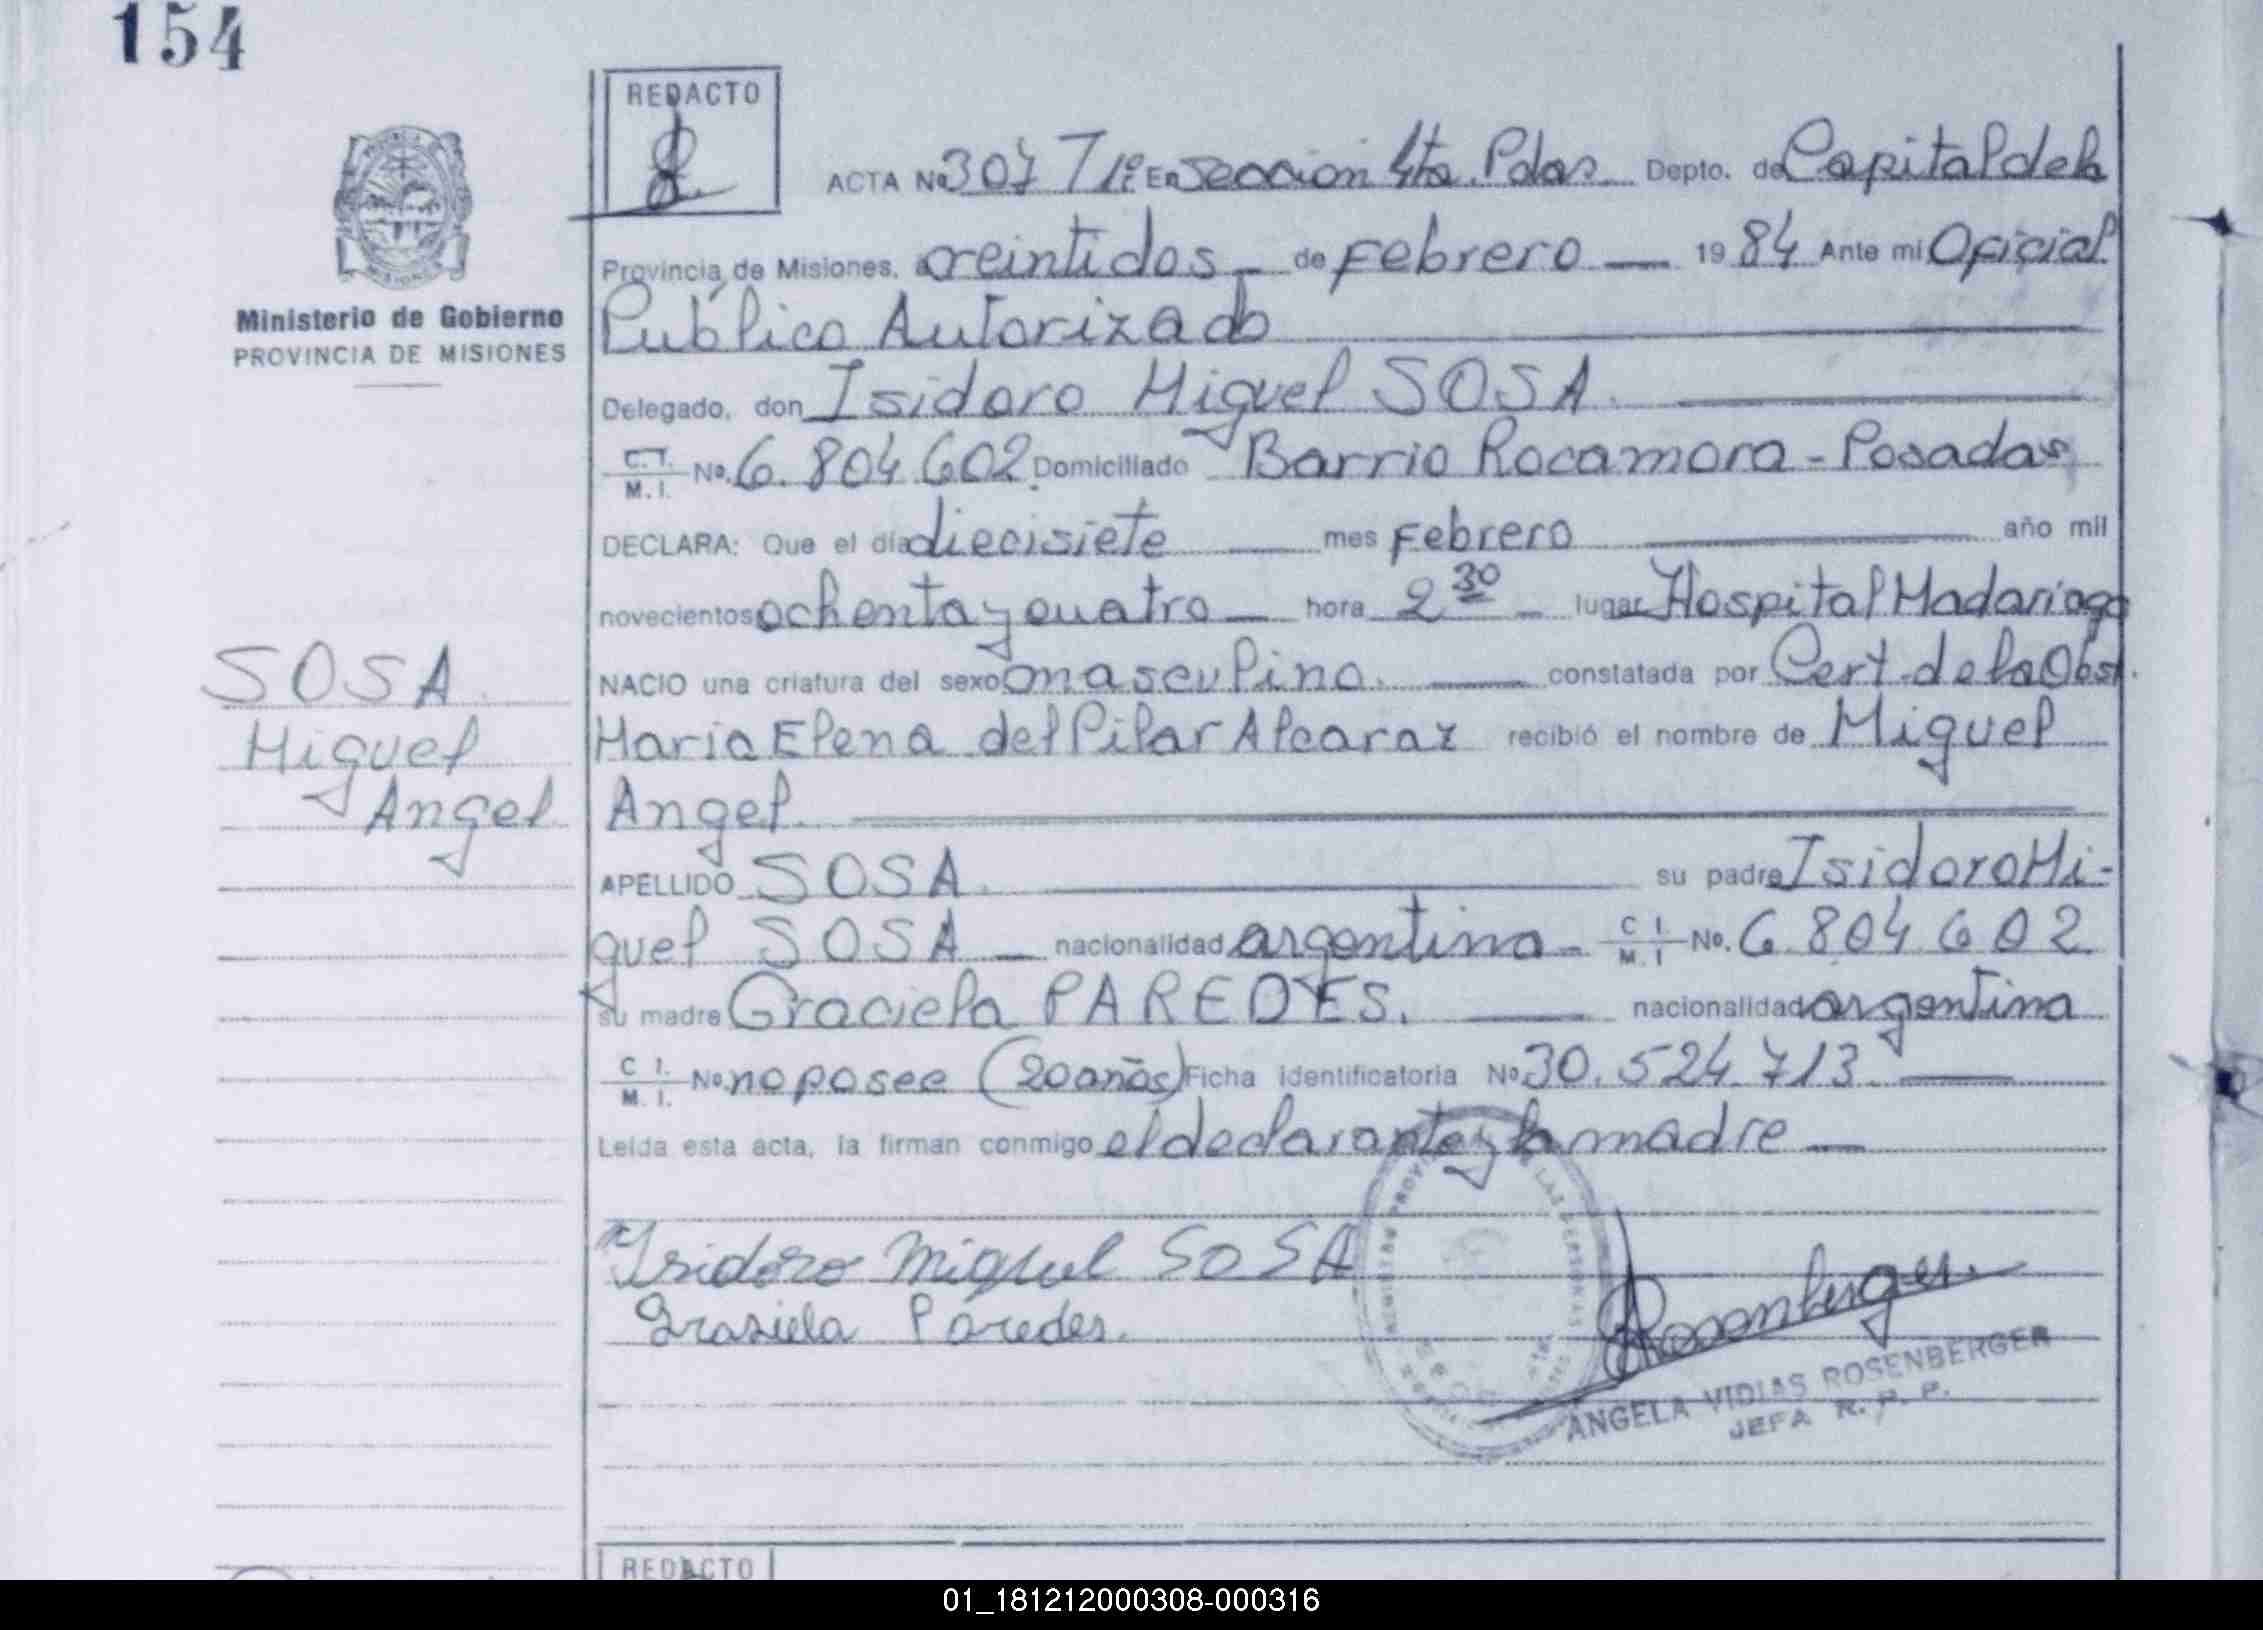 154
REDACTO
ACTA No 307 T 1º En Seccion 4ta. Pdas. Depto. de Capital de la
Provincia de Misiones, a veintidos de Febrero 1984 Ante mi Oficial
Ministerio de Gobierno
PROVINCIA DE MISIONES
Público Autorizado
Delegado, don Isidoro Miguel SOSA.
C.I. M.I. No. 6.804.602 Domiciliado Barrio Rocamora - Posadas
DECLARA: Que el día diecisiete mes Febrero año mil
novecientos ochenta y cuatro hora 2 30 lugar Hospital Madariaga
NACIO una criatura del sexo masculino. constatada por Cert. de la Obst.
SOSA
Miguel
Angel
Maria Elena del Pilar Alcaraz recibió el nombre de Miguel
Angel.
APELLIDO SOSA. su padre Isidoro Mi-
guel SOSA nacionalidad argentina C I. M. I No. 6.804.602
su madre Graciela PAREDES. nacionalidad argentina
C I. M. I. No. no posee (20 años) Ficha identificatoria No 30.524.713.
Leída esta acta, la firman conmigo el declarante y la madre
Isidoro Miguel SOSA
Grasiela Paredes.
Rosenberger
ANGELA VIDIAS ROSENBERGER
JEFA R. P. P.
REDACTO
01_181212000308-000316